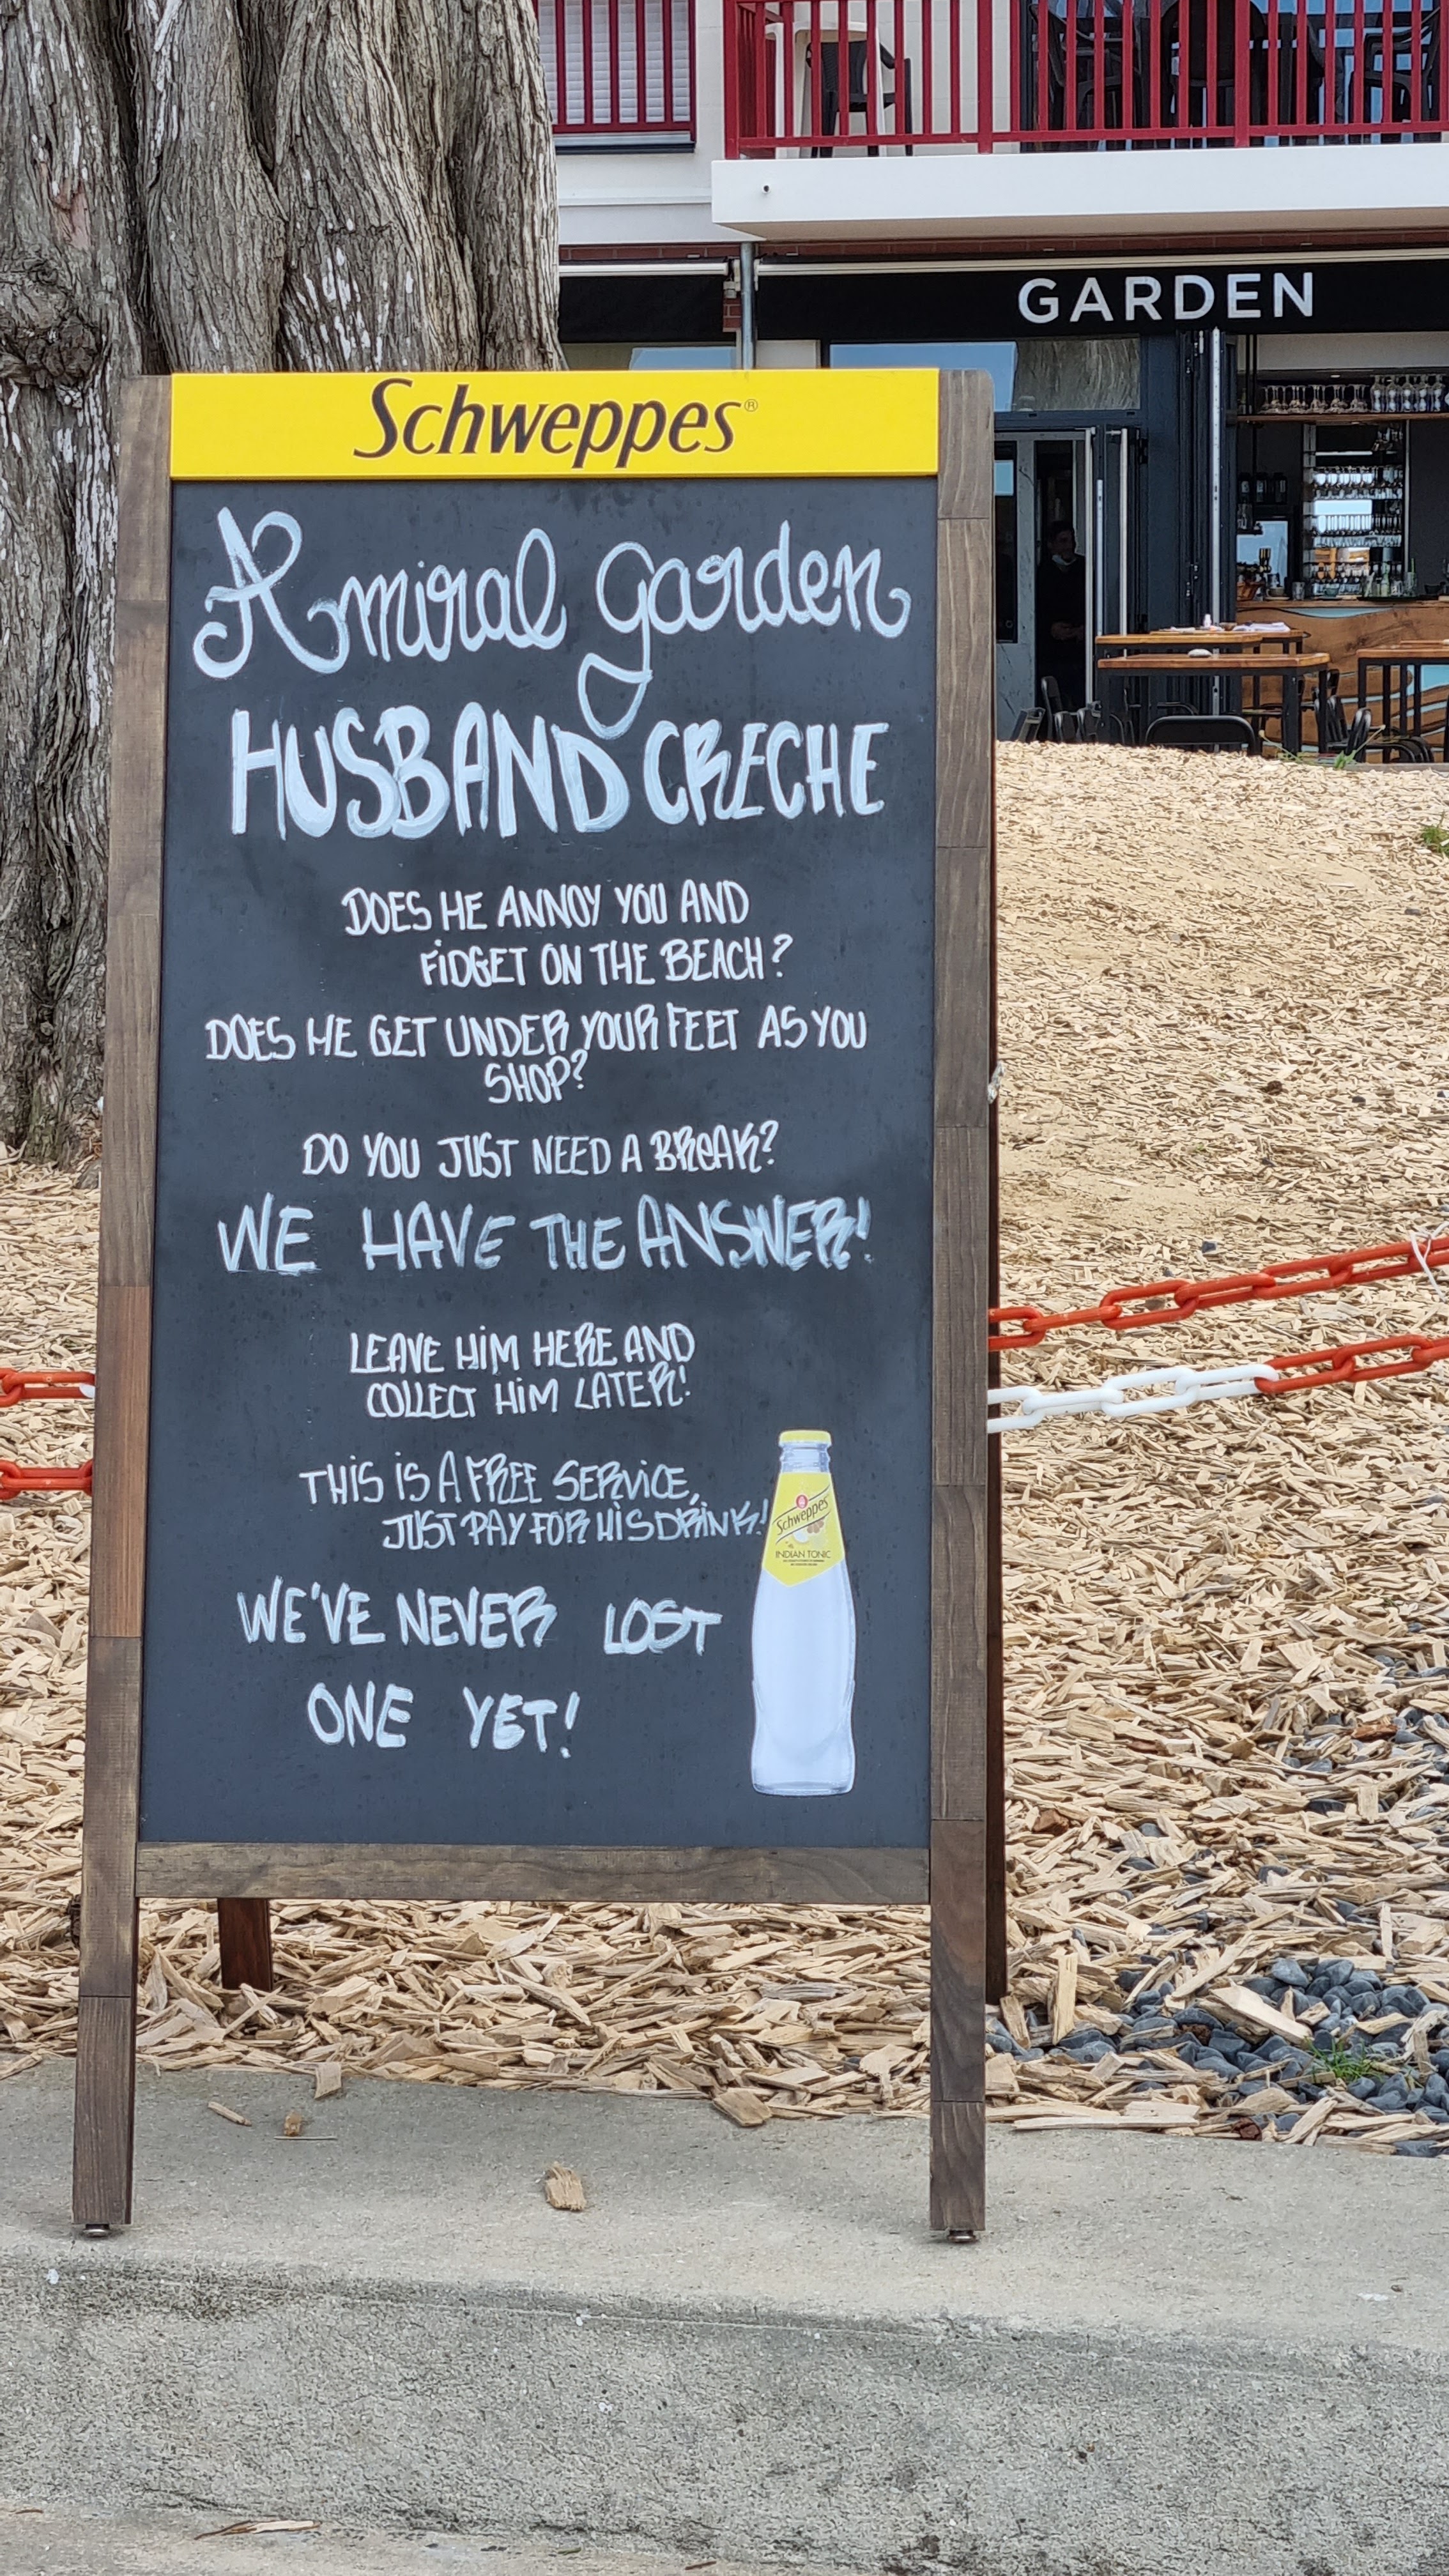 GARDEN
Schweppes®
Amiral garden
HUSBAND CRECHE
DOES HE ANNOY YOU AND
FIDGET ON THE BEACH?
DOES HE GET UNDER YOUR FEET AS YOU
SHOP?
DO YOU JUST NEED A BREAK?
WE HAVE THE ANSWER!
LEAVE HIM HERE AND
COLLECT HIM LATER!
THIS IS A FREE SERVICE,
JUST PAY FOR HIS DRINK!
Schweppes
INDIAN TONIC
WE'VE NEVER LOST
ONE YET!